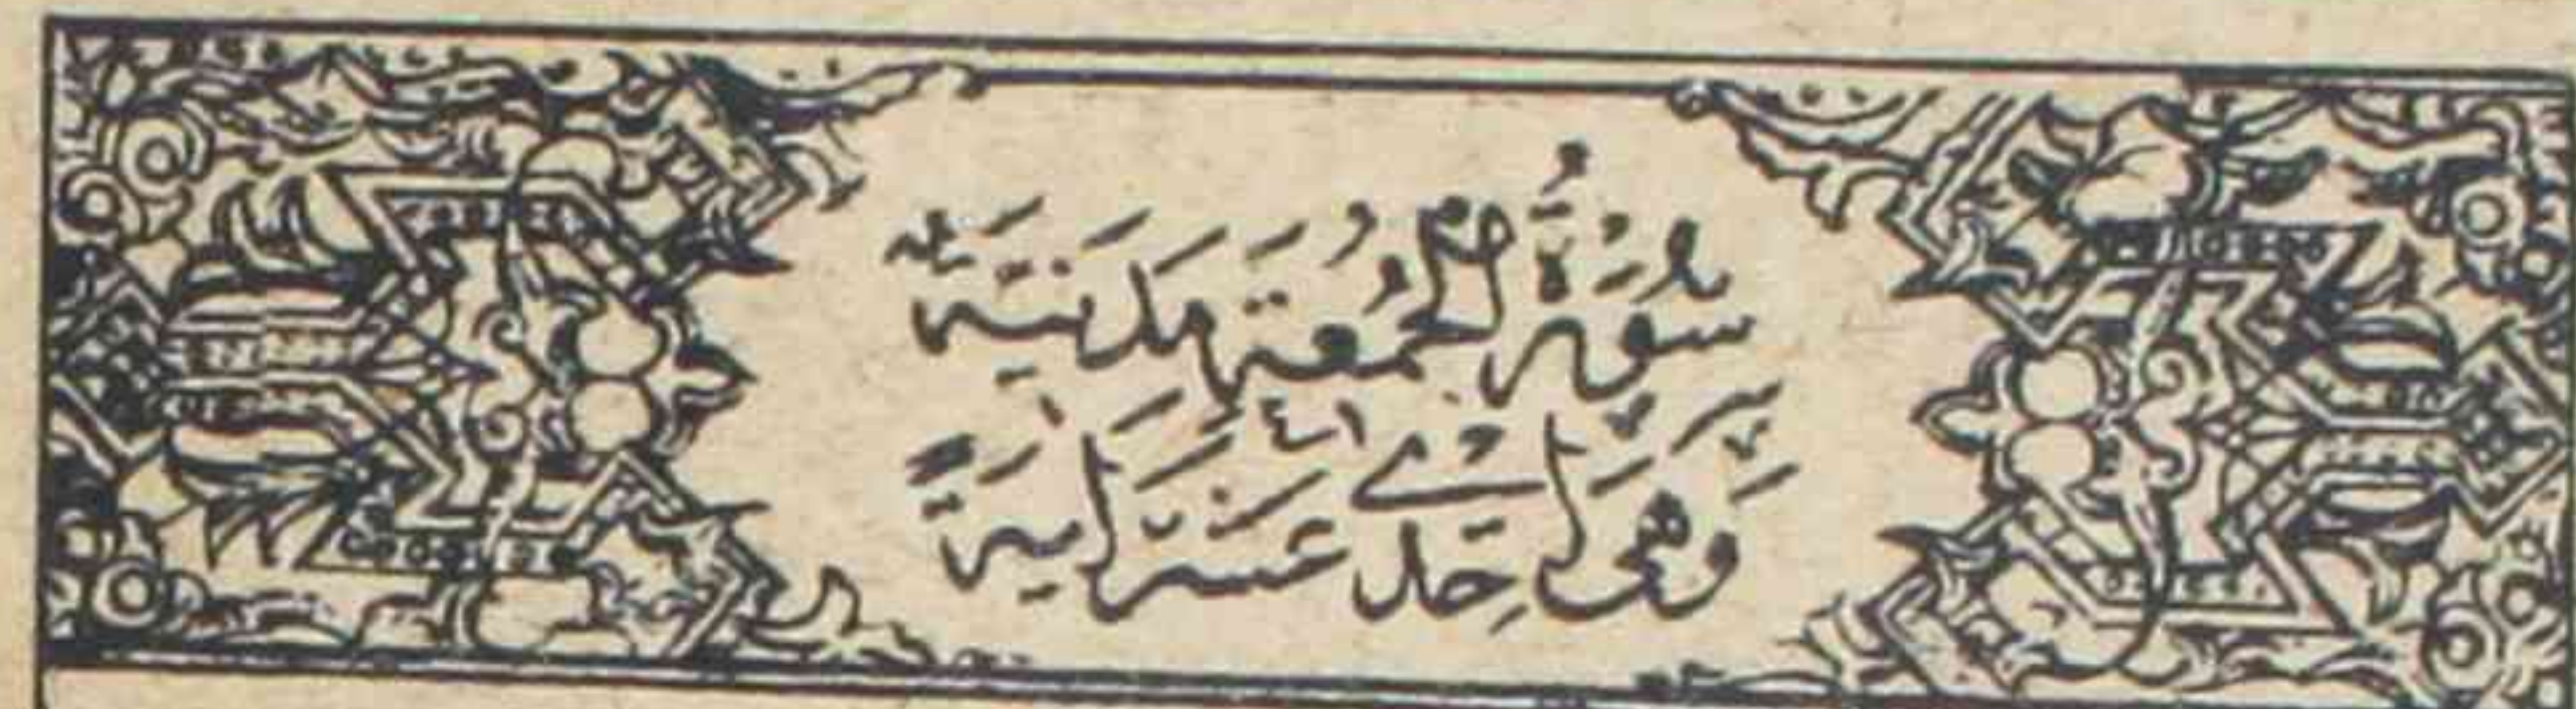 سُورَةُ الْجُمُعَةِ مَدَنِيَّةٌ
وَهِيَ إِحْدَى عَشَرَ اٰيَةً